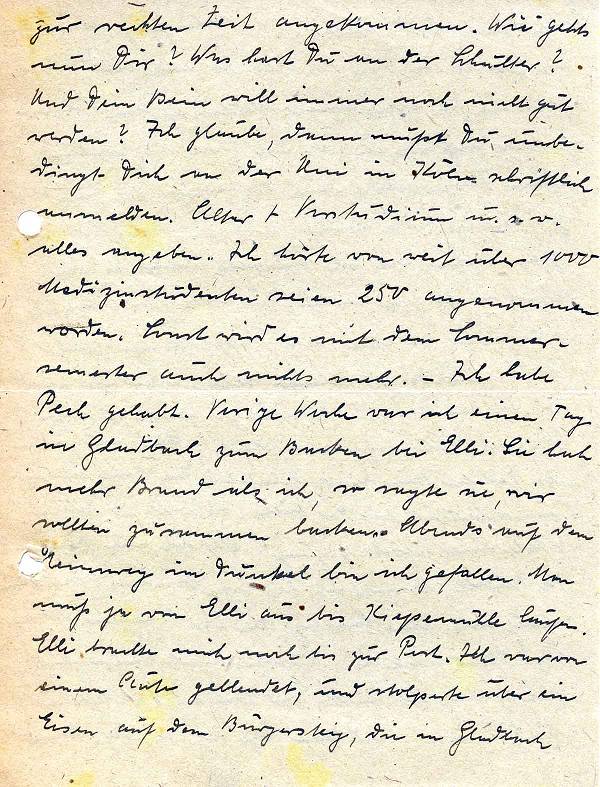 zur rechten Zeit angekommen. Wie gehts
nun Dir? Was hast Du an der Schulter?
Und Dein Bein will immer noch nicht gut
werden? Ich glaube, dann mußt Du unbe-
dingt Dich an der Uni in Köln schriftlich
anmelden. Alter + Vorstudium u.s.w.
alles angeben. Ich hörte von weit über 1000
Medizinstudenten seien 250 angenommen
worden. Sonst wird es mit dem Sommer-
semester auch nichts mehr. – Ich habe
Pech gehabt. Vorige Woche war ich einen Tag
in Gladbach zum Backen bei Elli. Sie hat
mehr Brand als ich, so sagte sie, wir
sollten zusammen backen. Abends auf dem
Heimweg im Dunkel bin ich gefallen. Man
muß ja von Elli aus bis Kieppemühle laufen.
Elli brachte mich noch bis zur Post. Ich war von
einem Auto geblendet, und stolperte über ein
Eisen auf dem Bürgersteig, die in Gladbach